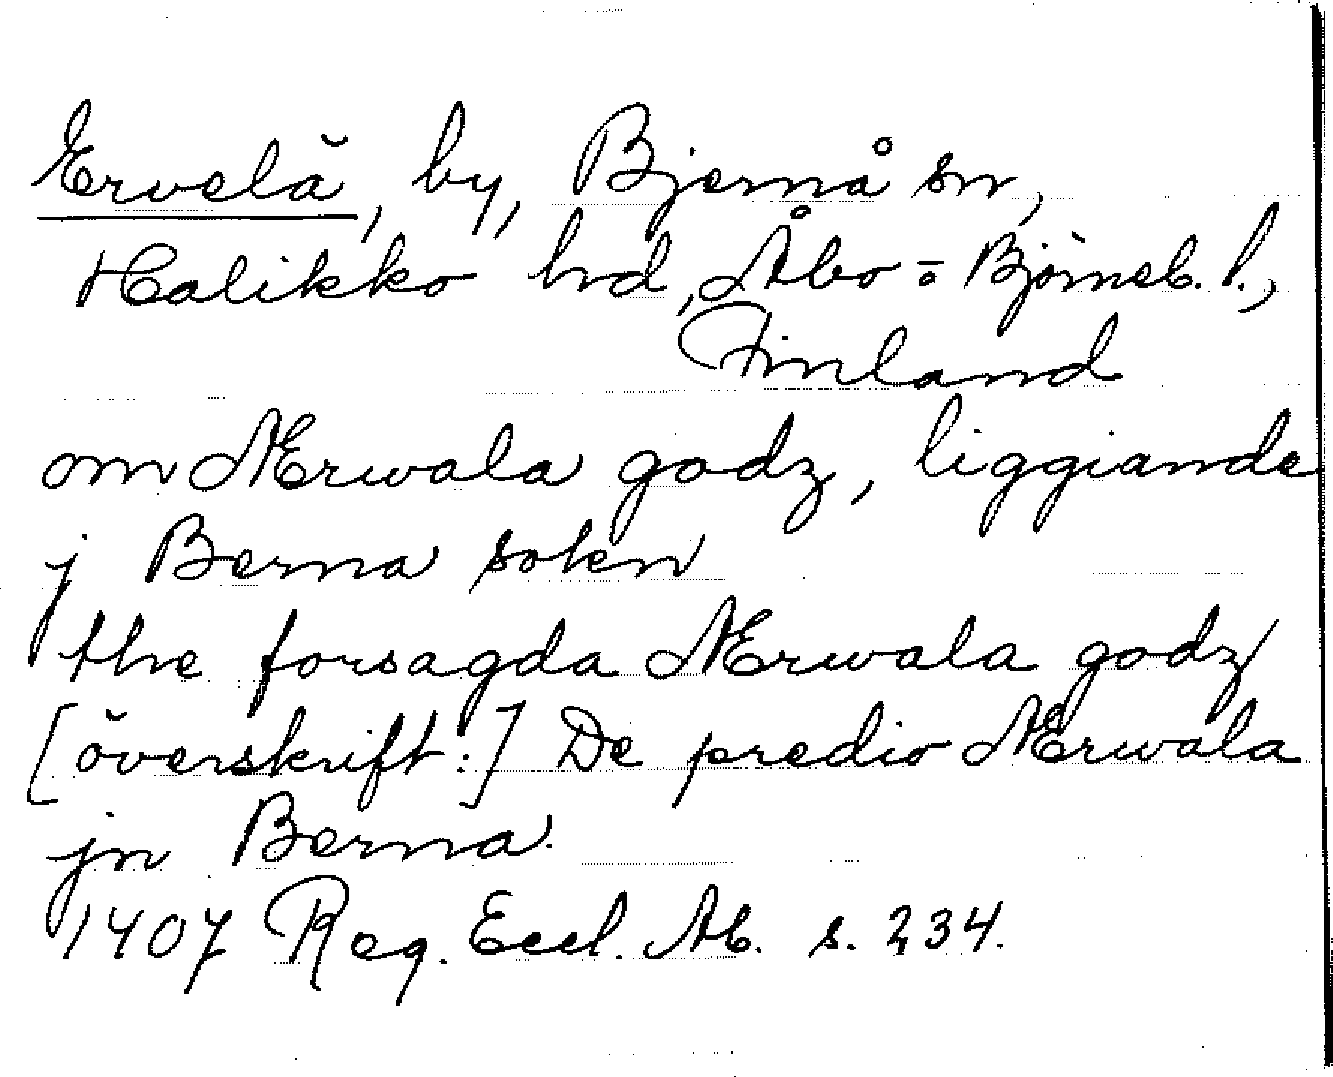 Ervelä, by, Bjernå sn,
Halikko hd, Åbo-Björneb. l.,
Finland
om Ærwala godz, liggiande
j Berna sokn
the forsagda Ærwala godz
[överskrift:] De predio Ærwala
jn Berna.
1407 Reg. Eccl. Ab. s. 234.